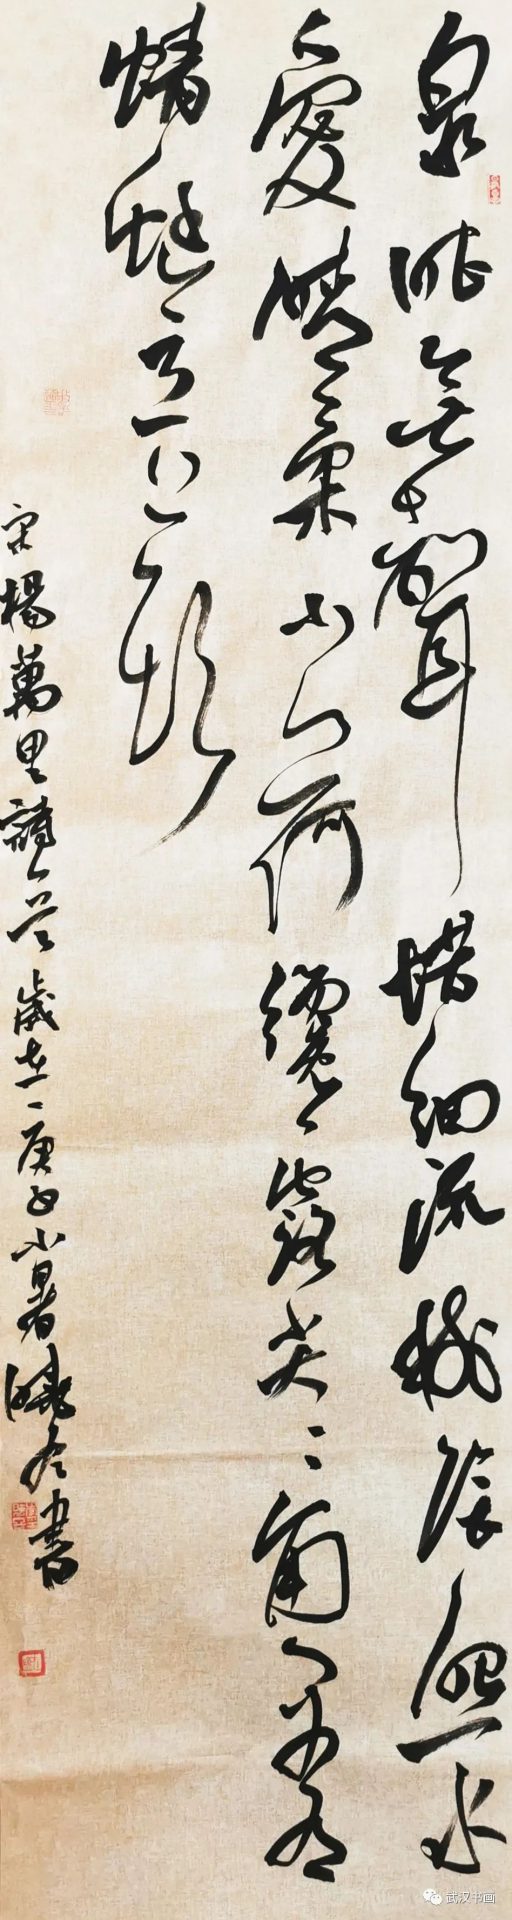 泉眼無聲惜細流樹陰照水
愛晴柔小荷纔露尖尖角早有
蜻蜓立上頭
宋楊萬里詩一首歲在庚子小暑曉書
武汉书画